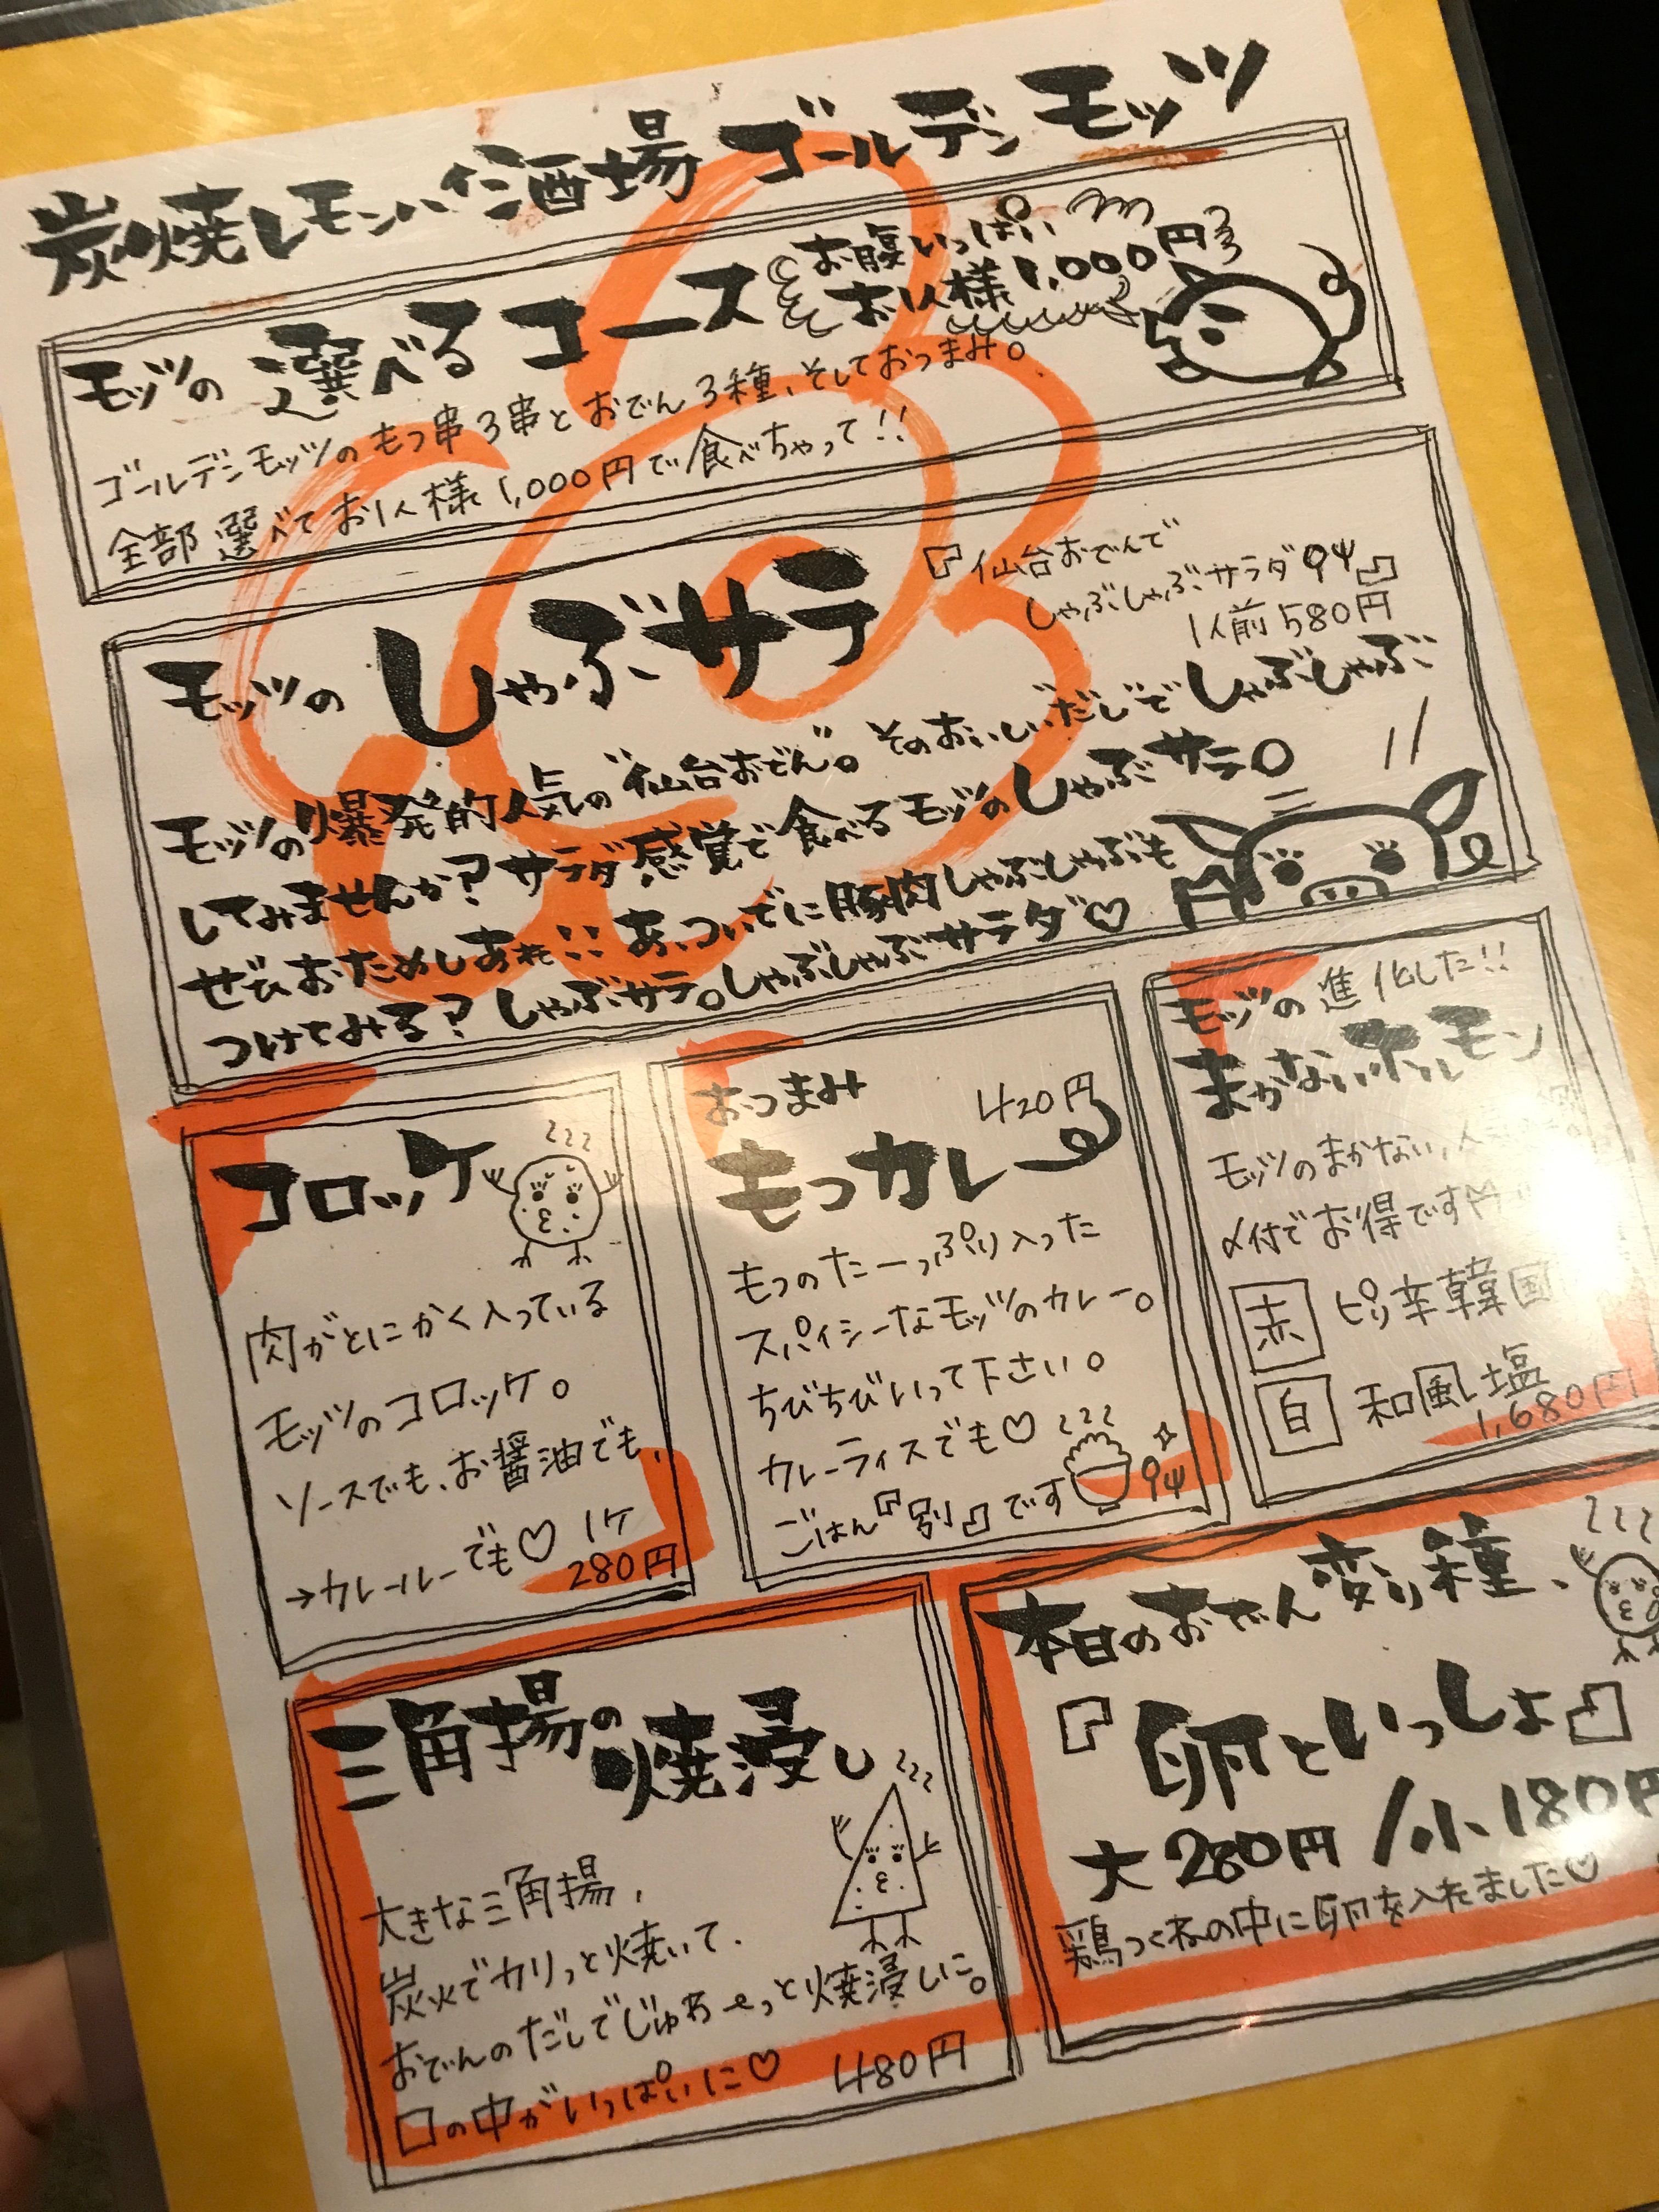 炭焼レモンハイ酒場 ゴールデンモッツ
モッツの 選べるコース
お腹いっぱい
お1人様1,000円
ゴールデンモッツのもつ串3串とおでん3種、そしておつまみ。
全部選べてお1人様1,000円で食べちゃって!!
モッツの しゃぶサラ
『仙台おでんで
しゃぶしゃぶサラダ』
1人前580円
モッツの爆発的人気の“仙台おでん”。そのおいしいだしでしゃぶしゃぶ
してみませんか?サラダ感覚で食べるモッツのしゃぶサラ。
ぜひおためしあれ!!あ、ついでに豚肉しゃぶしゃぶも
つけてみる?しゃぶサラ。しゃぶしゃぶサラダ♡
コロッケ
肉がとにかく入っている
モッツのコロッケ。
ソースでも、お醤油でも、
→カレールーでも♡ 1ケ
280円
おつまみ
420円
もつカレー
もつのたーっぷり入った
スパイシーなモッツのカレー。
ちびちびいって下さい。
カレーライスでも♡
ごはん『別』です
モッツの進化した!!
まかないホルモン
モッツのまかない、人気
〆付でお得です
赤 ピリ辛韓国
白 和風塩
1,680円
三角揚の焼浸し
大きな三角揚、
炭火でカリっと焼いて、
おでんのだしでじゅわぁ〜っと焼浸しに。
口の中がいっぱいに♡ 480円
本日のおでん変り種、
『卵といっしょ』
大280円/小180円
鶏つくねの中に卵を入れました♡